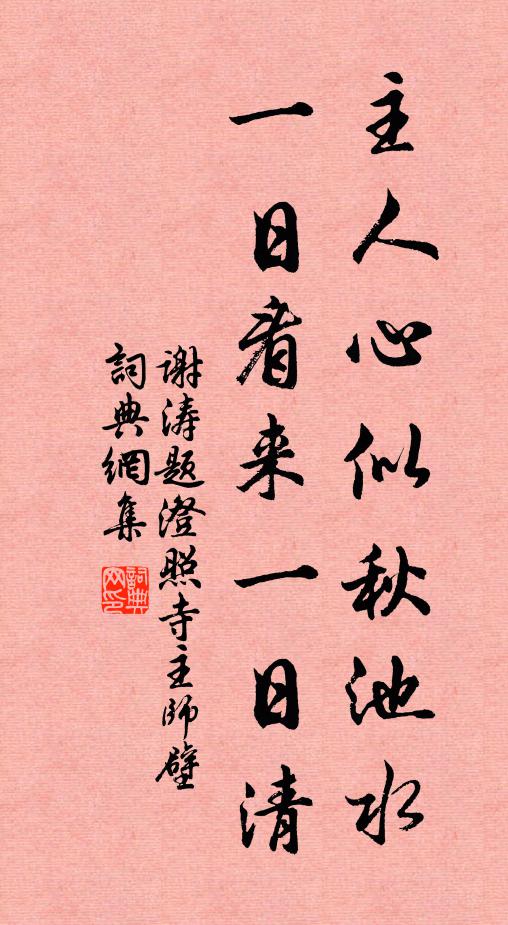 主人心似秋池水
一日看来一日清
谢涛题澄照寺主師壁
詞典網集
詞典网印